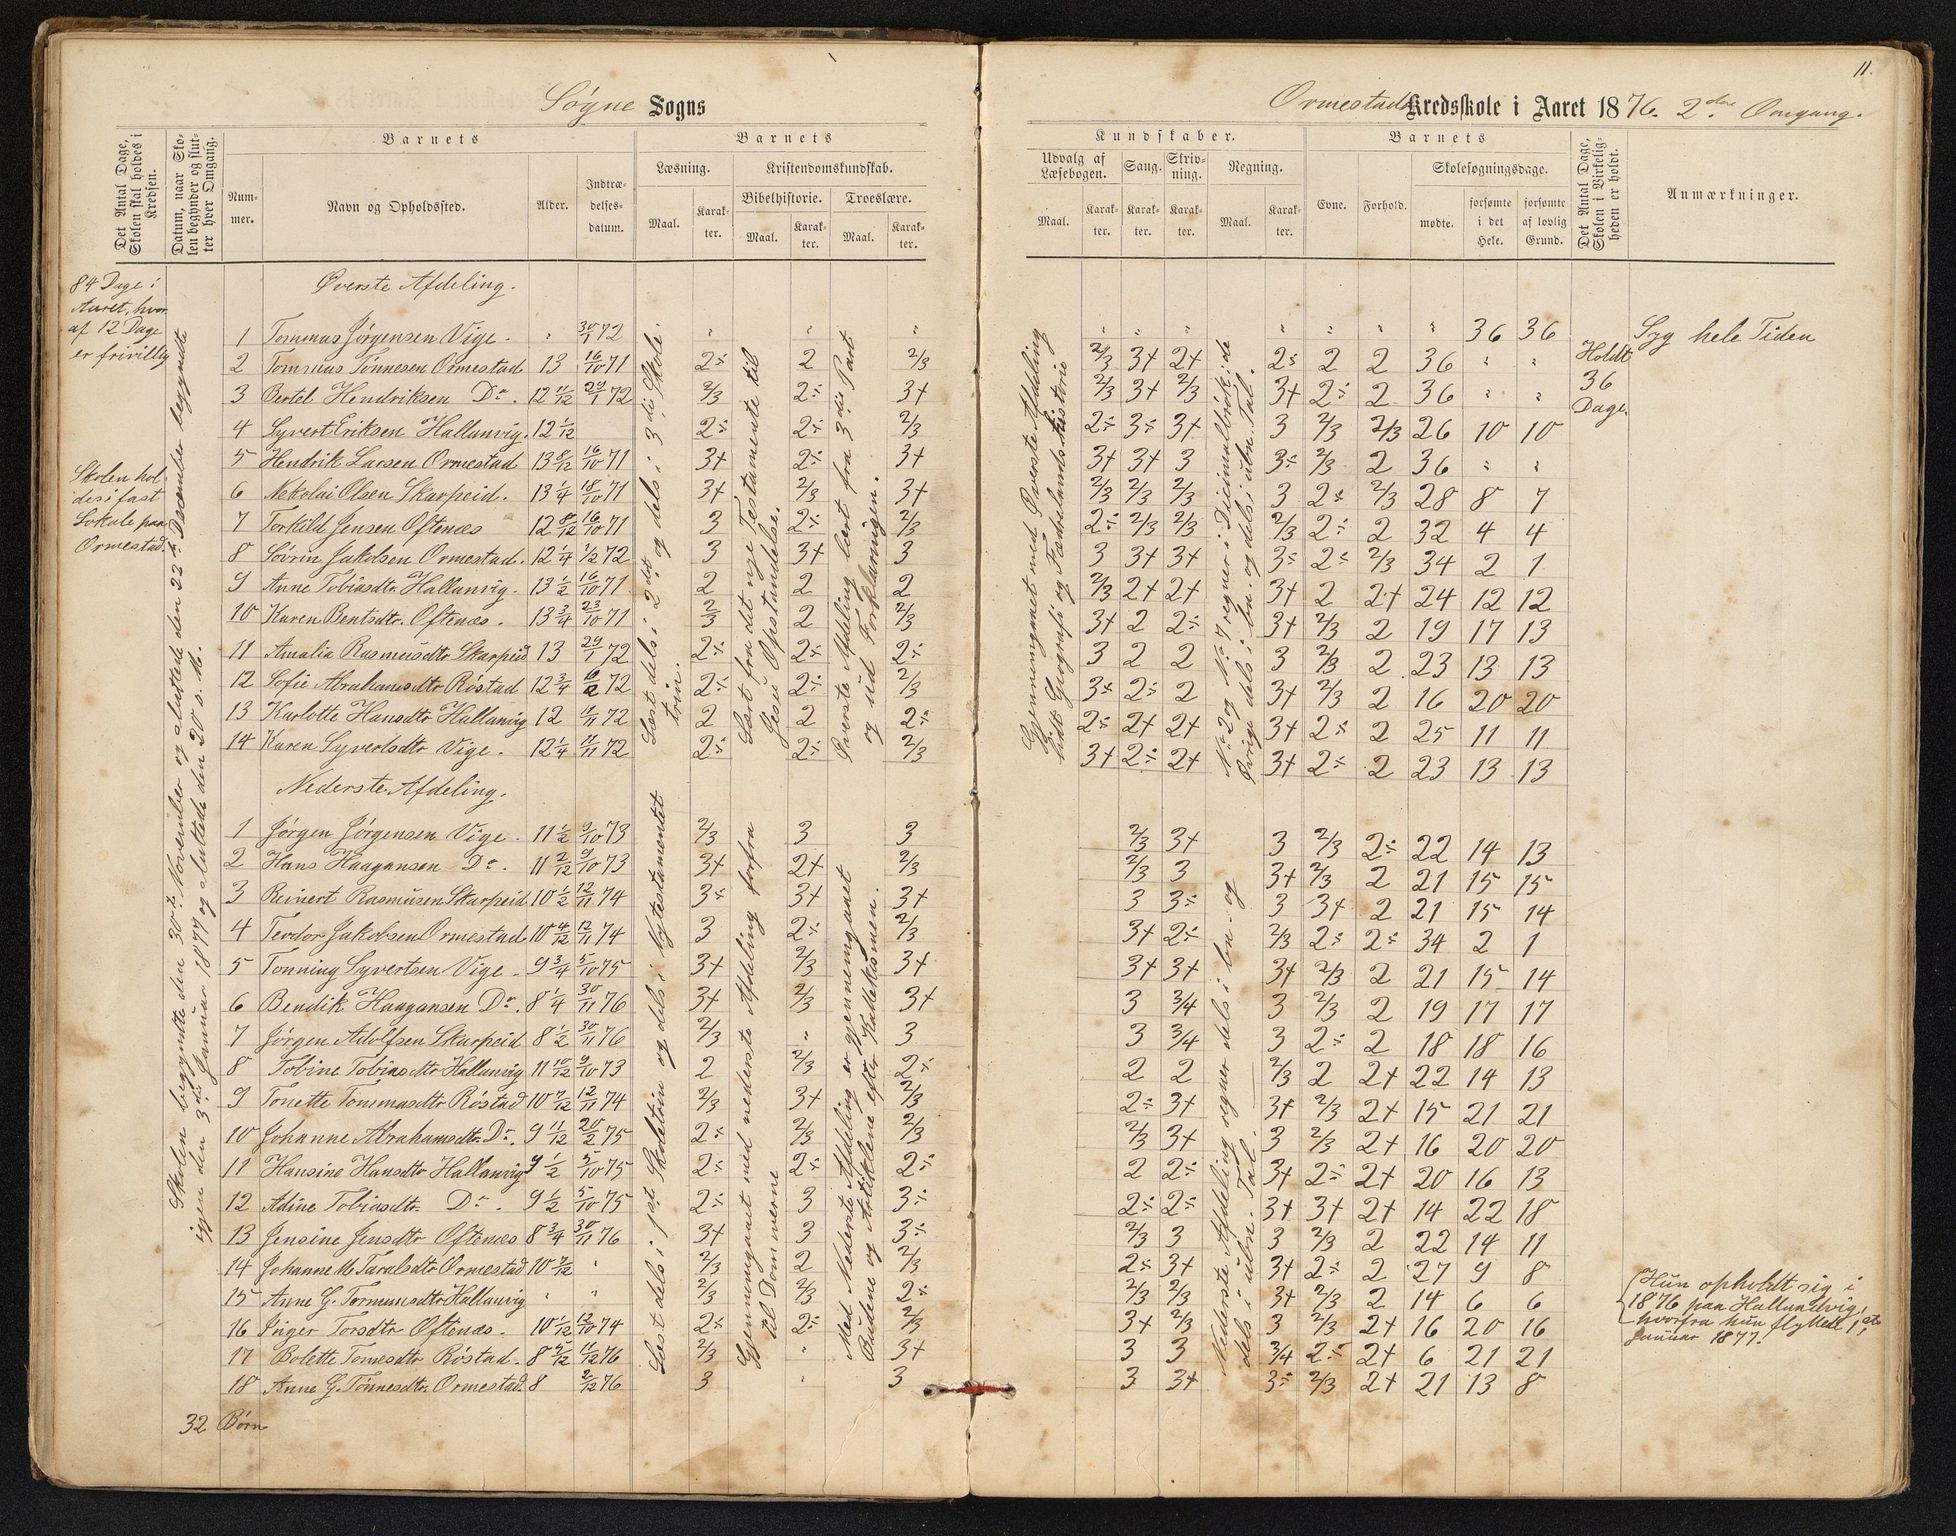 11.
Søgne Sogns
Ormestads Kredsskole i Aaret 1876. 2den Omgang.
Det Antal Dage, Skolen skal holdes i Kredsen.
Datum, naar Skolen begynder og slutter hver Omgang.
Barnets
Nummer.
Navn og Opholdssted.
Alder.
Indtrædelsesdatum.
Barnets
Læsning.
Maal.
Karakter.
Kristendomskundskab.
Bibelhistorie.
Maal.
Karakter.
Troeslære.
Maal.
Karakter.
Kundskaber.
Udvalg af Læsebogen.
Maal.
Karakter.
Sang.
Karakter.
Skrivning.
Karakter.
Regning.
Maal.
Karakter.
Barnets
Evne.
Forhold.
Skolesøgningsdage.
mødte.
forsømte i det Hele.
forsømte af lovlig Grund.
Det Antal Dage, Skolen i Virkeligheden er holdt.
Anmærkninger.
84 Dage i
Aaret, hvor
af 12 Dage
er frivillig
Skolen hol-
des i fast
Lokale paa
Ormestad.
Skolen begyndte den 30te November og sluttede den 22de December begyndte
igjen den 3die Januar 1877 og sluttede den 20 s. M.
Øverste Afdeling.
1 Tommas Jørgensen Vige. " 30/1 72 " " " " " " " " " " 36 36 Syg hele Tiden
2 Tommas Tønnesen Ormestad 13 16/10 71 2÷ 2 2/3 2/3 3+ 2+ 2÷ 2 2 36 " "
3 Bertel Hendriksen Do. 12 11/12 29/1 72 2/3 2÷ 3+ 2/3 3+ 2/3 3+ 2÷ 2 36 " "
4 Syvert Eriksen Hallanvig. 12 1/12 2÷ 2÷ 2/3 2÷ 3÷ 3+ 3 2/3 2/3 26 10 10
5 Hendrik Larsen Ormestad 13 8/12 16/10 71 3+ 2÷ 3+ 3+ 3+ 3 3÷ 2/3 2 36 " "
6 Nekolai Olsen Skarpeid. 13 1/4 18/10 71 3+ 2/3 3+ 2/3 2/3 2/3 3 2÷ 2/3 28 8 7
7 Torkild Jensen Oftenæs 12 8/12 16/10 71 3 2÷ 2/3 2÷ 2/3 2/3 2/3 2÷ 2 32 4 4
8 Sørin Jakobsen Ormestad. 12 1/4 1/2 72 3 3+ 3 3 3+ 3+ 3÷ 2÷ 2/3 34 2 1
9 Anne Tobiasdtr Hallanvig. 13 1/2 16/10 71 2 2 2 2/3 2+ 2+ 3+ 2 2+ 24 12 12
10 Karen Bentsdtr. Oftenæs. 13 3/4 23/10 71 2/3 2 2/3 3+ 2 2÷ 3+ 2/3 2 19 17 13
11 Amalia Rasmusdtr Skarpeid 13 29/1 72 2÷ 2÷ 2÷ 3 2 2 3 2/3 2 23 13 13
12 Sofie Abrahamsdtr Røstad 12 3/4 16/2 72 2÷ 2÷ 2/3 3÷ 2÷ 2 3+ 2/3 2 16 20 20
13 Karlotte Hansdtr Hallanvig 12 11/11 72 2 2 2÷ 2÷ 2+ 2+ 3+ 2÷ 2 25 11 11
14 Karen Syvertsdtr Vige. 12 1/4 11/11 72 2÷ 2÷ 2/3 3+ 2÷ 2+ 3+ 2÷ 2 23 13 13
Læst dels i 2det og dels i 3die Skole-
trin.
Læst fra det nye Testamente til
Jesu Opstandelse.
Øverste Afdeling lært fra 3die Part
og ud Forklaringen.
Gjennemgaaet med Øverste Afdeling
lidt Geografi og Fædrelandshistorie
No 2 og No 7 regner i Decimalbrøk; de
Øvrige dels i bn. og dels i ubn. Tal.
Holdt
36
Dage.
Nederste Afdeling.
1 Jørgen Jørgensen Vige. 11 1/2 9/10 73 2/3 3 3 2/3 3+ 3 2/3 2÷ 22 14 13
2 Hans Haagansen Do. 11 2/12 9/10 73 3+ 2+ 2/3 2/3 3 3+ 2/3 2 21 15 15
3 Reinert Rasmusen Skarpeid 10 1/2 12/11 74 3÷ 3+ 3+ 3 3÷ 3 3+ 2 21 15 14
4 Teodor Jakobsen Ormestad 10 4/12 12/11 74 3 2÷ 2/3 3+ 2÷ 2/3 2÷ 2÷ 34 2 1
5 Tønning Syvertsen Vige. 9 3/4 5/10 75 3+ 2/3 3+ 3+ 3+ 3+ 2/3 2 21 15 14
6 Bendik Haagansen Do. 8 1/4 30/11 76 3+ 2/3 3+ 3 3/4 3 2/3 2 19 17 17
7 Jørgen Adolfsen Skarpeid 8 1/2 30/11 76 2/3 " 3 3 3/4 3 2÷ 2 18 18 16
8 Tobine Tobiasdtr Hallanvig 11 10/12 9/10 73 2 2/3 2÷ 2 2 2/3 2 2+ 22 14 13
9 Tonette Tommasdtr Røstad 10 7/12 12/11 74 2/3 3+ 2/3 2÷ 3+ 3+ 2/3 2+ 15 21 21
10 Johanne Abrahamsdtr. Do. 9 11/12 20/2 75 2÷ 2/3 2/3 2/3 3+ 3 2/3 2+ 16 20 20
11 Hansine Hansdtr Hallanvig 9 1/2 5/10 75 2÷ 2÷ 2÷ 2 2÷ 3+ 2÷ 2+ 20 16 13
12 Adine Tobiasdtr. Do. 9 1/2 5/10 75 2÷ 3 3÷ 2÷ 2÷ 3+ 3+ 2+ 14 22 18
13 Jensine Jensdtr Oftenæs 8 3/4 30/11 76 3+ 3 3÷ 2/3 3 3 2/3 2 22 14 11
14 Johanne M Taralsdtr Ormestad 10 7/12 " 2/3 2 2/3 2÷ 3+ 3+ 2÷ 2 27 9 8
15 Anne G. Tormunsdtr Hallanvig " " 2/3 2/3 2÷ 2/3 2/3 3+ 2/3 2 14 6 6
16 Inger Torsdtr Oftenæs. 10 1/12 12/10 74 2÷ 2÷ 2/3 3+ 2/3 3 2/3 2+ 16 20 16
17 Bolette Tomesdtr Røstad. 8 9/12 11/12 76 2/3 " 3+ 3 3 3/4 2÷ 2+ 6 21 21
18 Anne G. Tønnesdtr. Ormestad. 8 2/12 76 3 " 3 3 3+ 3÷ 2/3 2+ 21 13 8
Læst dels i 1ste Skoletrin og dels i Nytestamentet
Gjennemgaaet med nederste Afdeling forfra
til Dommerne
Med Nederste Afdeling er gjennemgaaet
Budene og Artiklene efter Katekismen.
Nederste Afdeling regner dels i bn. og
dels i ubn. Tal.
Hun opholdt sig i
1876 paa Hallandvig,
hvorfra hun flyttede 1ste
Januar 1877.
32 Børn